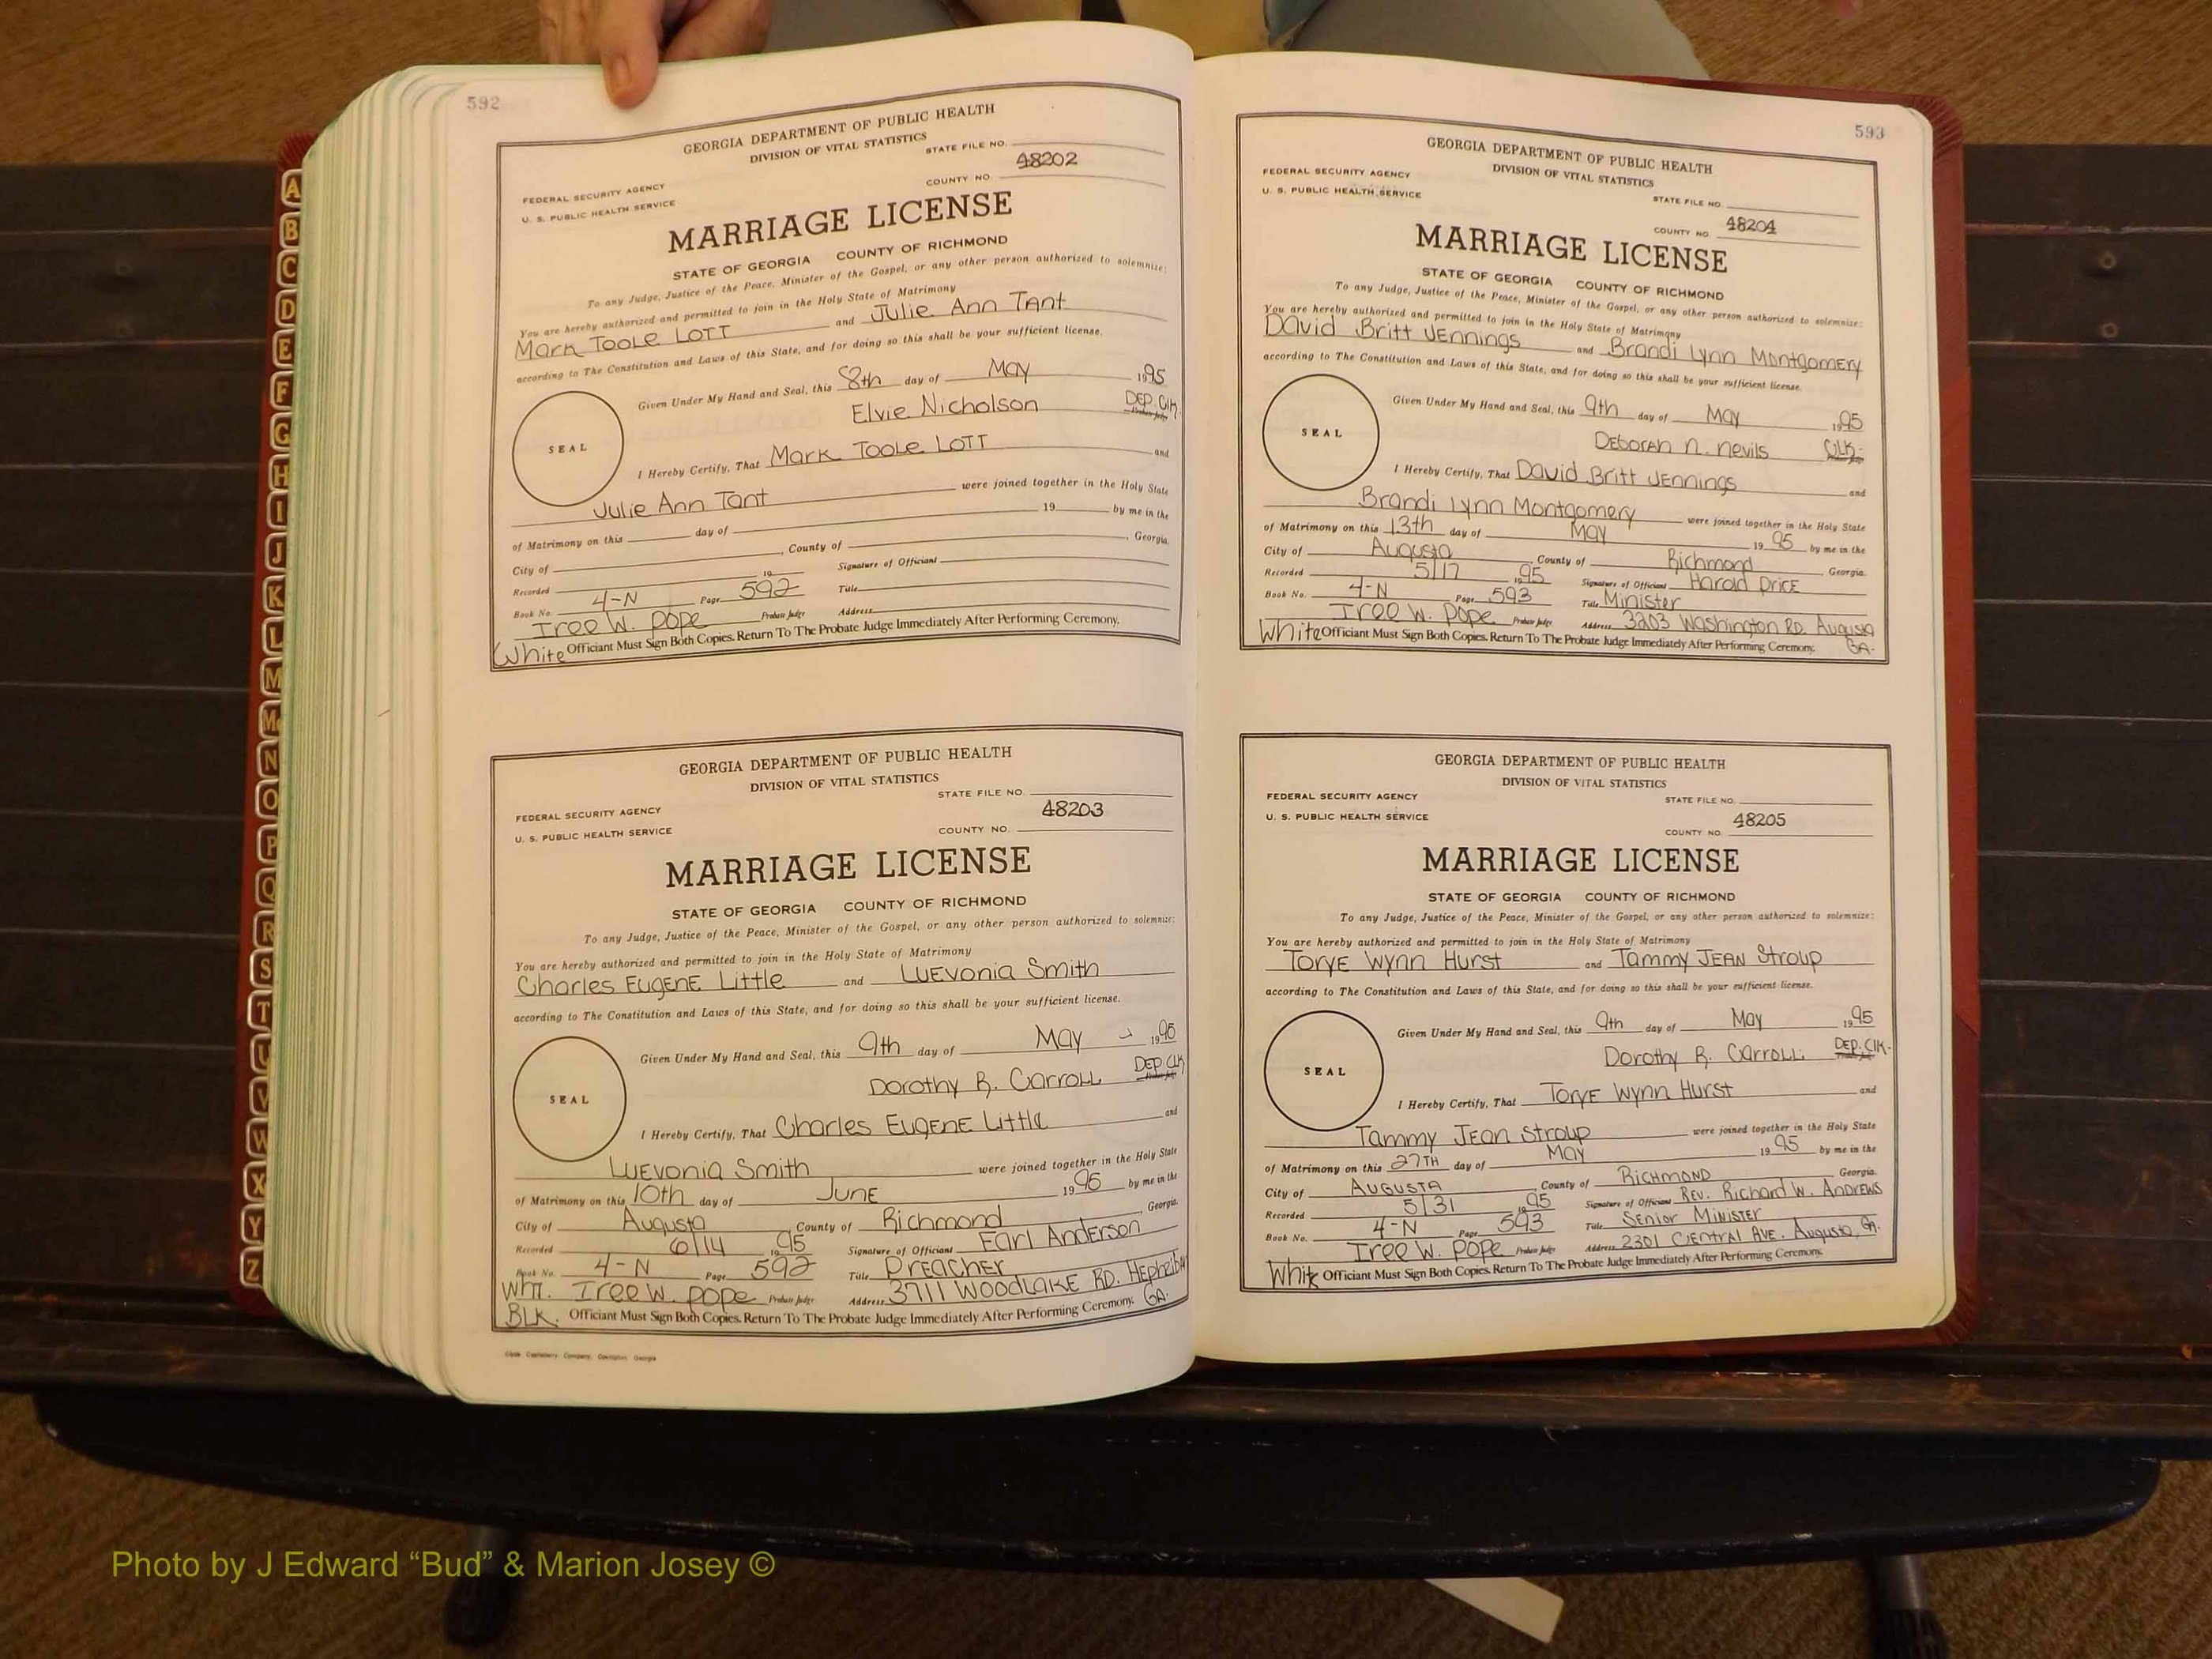 A
B
C
D
E
F
G
H
I
J
K
L
M
Mc
N
O
P
Q
R
S
T
U
V
W
X
Y
Z
592
GEORGIA DEPARTMENT OF PUBLIC HEALTH
DIVISION OF VITAL STATISTICS
STATE FILE NO.
48202
FEDERAL SECURITY AGENCY
COUNTY NO.
U. S. PUBLIC HEALTH SERVICE
MARRIAGE LICENSE
STATE OF GEORGIA COUNTY OF RICHMOND
To any Judge, Justice of the Peace, Minister of the Gospel, or any other person authorized to solemnize:
You are hereby authorized and permitted to join in the Holy State of Matrimony
Mark Toole Lott and Julie Ann Tant
according to The Constitution and Laws of this State, and for doing so this shall be your sufficient license.
Given Under My Hand and Seal, this 8th day of May 1995
Elvie Nicholson DEP. Clk.
Probate Judge
SEAL
I Hereby Certify, That Mark Toole Lott and
Julie Ann Tant were joined together in the Holy State
of Matrimony on this day of 19 by me in the
City of , County of , Georgia.
Recorded 19 Signature of Officiant
Book No. 4-N Page 592 Title
Iree W. Pope Probate Judge Address
White Officiant Must Sign Both Copies. Return To The Probate Judge Immediately After Performing Ceremony.
GEORGIA DEPARTMENT OF PUBLIC HEALTH
DIVISION OF VITAL STATISTICS
STATE FILE NO.
48203
FEDERAL SECURITY AGENCY
COUNTY NO.
U. S. PUBLIC HEALTH SERVICE
MARRIAGE LICENSE
STATE OF GEORGIA COUNTY OF RICHMOND
To any Judge, Justice of the Peace, Minister of the Gospel, or any other person authorized to solemnize:
You are hereby authorized and permitted to join in the Holy State of Matrimony
Charles Eugene Little and Luevonia Smith
according to The Constitution and Laws of this State, and for doing so this shall be your sufficient license.
Given Under My Hand and Seal, this 9th day of May 1995
Dorothy R. Carroll DEP. Clk
Probate Judge
SEAL
I Hereby Certify, That Charles Eugene Little and
Luevonia Smith were joined together in the Holy State
of Matrimony on this 10th day of June 1995 by me in the
City of Augusta , County of Richmond Georgia.
Recorded 6/14 1995 Signature of Officiant Earl Anderson
Book No. 4-N Page 592 Title Preacher
Wht. Iree W. Pope Probate Judge Address 3711 Woodlake Rd. Hephzibah
GA.
BLK. Officiant Must Sign Both Copies. Return To The Probate Judge Immediately After Performing Ceremony.
593
GEORGIA DEPARTMENT OF PUBLIC HEALTH
DIVISION OF VITAL STATISTICS
FEDERAL SECURITY AGENCY
U. S. PUBLIC HEALTH SERVICE
STATE FILE NO.
48204
COUNTY NO.
MARRIAGE LICENSE
STATE OF GEORGIA COUNTY OF RICHMOND
To any Judge, Justice of the Peace, Minister of the Gospel, or any other person authorized to solemnize:
You are hereby authorized and permitted to join in the Holy State of Matrimony
David Britt Jennings and Brandi Lynn Montgomery
according to The Constitution and Laws of this State, and for doing so this shall be your sufficient license.
Given Under My Hand and Seal, this 9th day of May 1995
Deborah N. Nevils Clk.
SEAL
I Hereby Certify, That David Britt Jennings and
Brandi Lynn Montgomery were joined together in the Holy State
of Matrimony on this 13th day of May 1995 by me in the
City of Augusta , County of Richmond Georgia.
Recorded 5/17 1995 Signature of Officiant Harold Price
Book No. 4-N Page 593 Title Minister
Iree W. Pope Probate Judge Address 3203 Washington Rd. Augusta
GA.
White Officiant Must Sign Both Copies. Return To The Probate Judge Immediately After Performing Ceremony.
GEORGIA DEPARTMENT OF PUBLIC HEALTH
DIVISION OF VITAL STATISTICS
FEDERAL SECURITY AGENCY
STATE FILE NO.
U. S. PUBLIC HEALTH SERVICE
48205
COUNTY NO.
MARRIAGE LICENSE
STATE OF GEORGIA COUNTY OF RICHMOND
To any Judge, Justice of the Peace, Minister of the Gospel, or any other person authorized to solemnize:
You are hereby authorized and permitted to join in the Holy State of Matrimony
Torye Wynn Hurst and Tammy Jean Stroup
according to The Constitution and Laws of this State, and for doing so this shall be your sufficient license.
Given Under My Hand and Seal, this 9th day of May 1995
Dorothy R. Carroll DEP. Clk.
Probate Judge
SEAL
I Hereby Certify, That Torye Wynn Hurst and
Tammy Jean Stroup were joined together in the Holy State
of Matrimony on this 27TH day of May 1995 by me in the
City of Augusta , County of Richmond Georgia.
Recorded 5/31 1995 Signature of Officiant Rev. Richard W. Andrews
Book No. 4-N Page 593 Title Senior Minister
Iree W. Pope Probate Judge Address 2301 Central Ave. Augusta, GA.
White Officiant Must Sign Both Copies. Return To The Probate Judge Immediately After Performing Ceremony.
Photo by J Edward “Bud” & Marion Josey ©